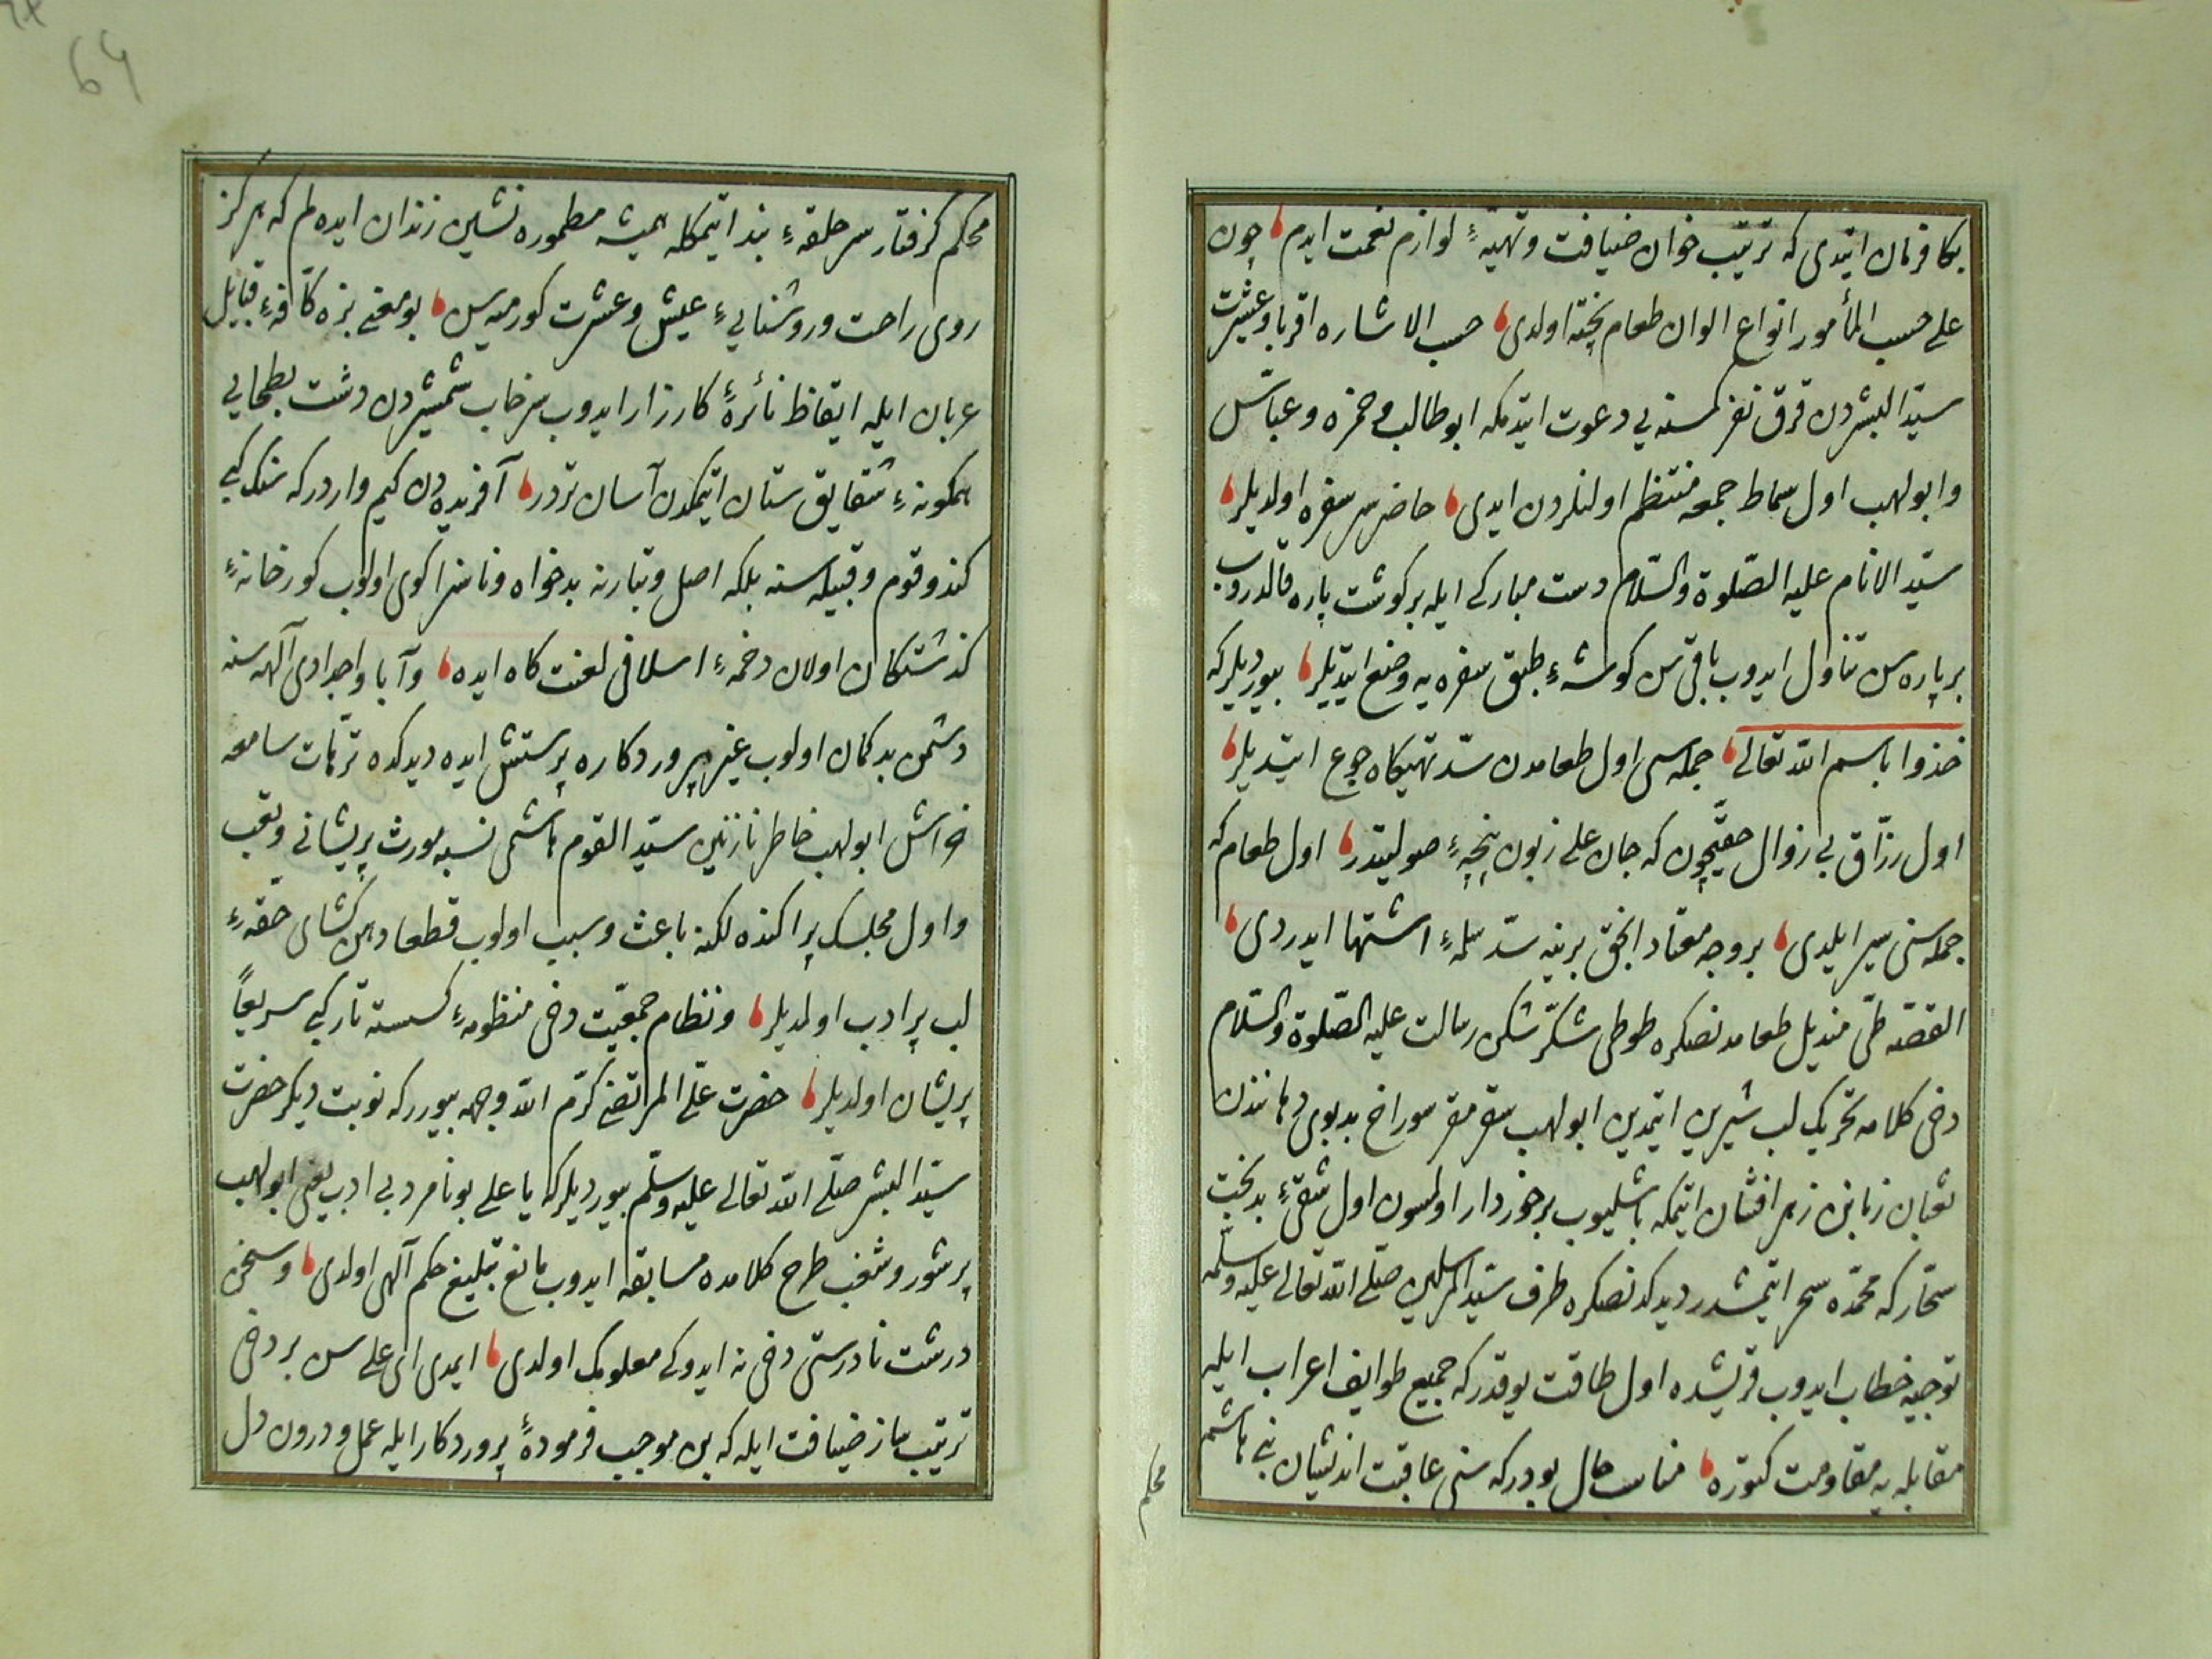 بكا فرمان ایتدی كه ترتیب خوان ضیافت وتهیهٔ لوازم نعمت ایدم چون
علی حسب المأمور انواع الوان طعام پخته اولدی حسب الاشاره اقربا وعشیرت
سیّد البشردن قرق نفر كمسنه یی دعوت ایتدمكه ابو طالب وحمزه وعبّاس
وابولهب اول سماط جمعه منتظم اولنلردن ایدی حاضر سر سفره اولدیلر
سیّد الانام علیه الصّلوة والسّلام دست مبارکی ایله بر كوشت پاره قالدروب
بر پاره سن تناول ایدوب باقی سن كوشهٔ طبق سفره یه وضع ایتدیلر بیوردیلركه
خذوا باسم اللّه تعالی جمله سی اول طعامدن سدّ تهیكاه جوع ایتدیلر
اول رزّاق بی زوال حقیچون كه جان علی زبون پنجهٔ صولتیدر اول طعام كه
جمله سنی سیر ایلدی بر وجه معتاد انجق برینه سدّ ثلمهٔ اشتها ایدردی
القصّه طیّ مندیل طعامدنصكره طوطی شكّر شكن رسالت علیه الصّلوة والسّلام
دخی كلامه تحریك لب شیرین ایتمدین ابولهب سقر مقر سوراخ بد بوی دهانندن
ثعبان زبانن زهر افشان ایتمكه باشلیوب برخوردار اولمسون اول شقیٔ بدبخت
سحّاركه محمّده سحر ایتمشدر دیدكدنصكره طرف سیّد المرسلین صلّی اللّه تعالی علیه وسلّمه
توجیه خطاب ایدوب قریشده اول طاقت یوقدركه جمیع طوایف اعراب ایله
مقابله یه مقاومت كتوره مناسب حال بودركه سنی عاقبت اندیشان بنی هاشم
محكم
64
محكم كرفتار سر حلقهٔ بند ایتمكله همیشه مطموره نشین زندان ایده لم كه هركز
روی راحت وروشناییٔ عیش وعشرت كورمیه سن بو معنی بزه كافّهٔ قبایل
عربان ایله ایقاظ نائرهٔ كارزار ایدوب سرخاب شمشیردن دشت بطحایی
همكونهٔ شقایق ستان ایتمكدن آسان تردر آفریده دن كیم واردركه سنك كبی
كندو قوم وقبیله سنه بلكه اصل وتبارنه بدخواه وناسزا كوی اولوب كورخانهٔ
كذشتكان اولان دخمهٔ اسلافی لعنت كاه ایده وآبا واجدادی آلهه سنه
دشمن بدكمان اولوب غیر پروردكاره پرستش ایده دیدكده ترّهات سامعه
خراش ابولهب خاطر نازنین سیّد القوم هاشمی نسبه مورث پریشانی وتعب
واول مجلسك پراكنده لكنه باعث وسبب اولوب قطعا دهن كشای حقّهٔ
لب پر ادب اولمدیلر ونظام جمعیّت دخی منظومهٔ كسسته تار كبی سریعاً
پریشان اولدیلر حضرت علی المرتضی كرّم اللّه وجهه بیورركه نوبت دیكر حضرت
سیّد البشر صلّی اللّه تعالی علیه وسلّم بیوردیلركه یا علی بو نامرد بی ادب یعنی ابولهب
پر شور وشغب طرح كلامده مسابقه ایدوب مانع تبلیغ حكم آلهی اولدی وسخن
درشت نادرستی دخی نه ایدوكی معلومك اولدی ایمدی ای علی سن بر دخی
ترتیب ساز ضیافت ایله كه بن موجب فرمودهٔ پروردكار ایله عمل ودرون دل